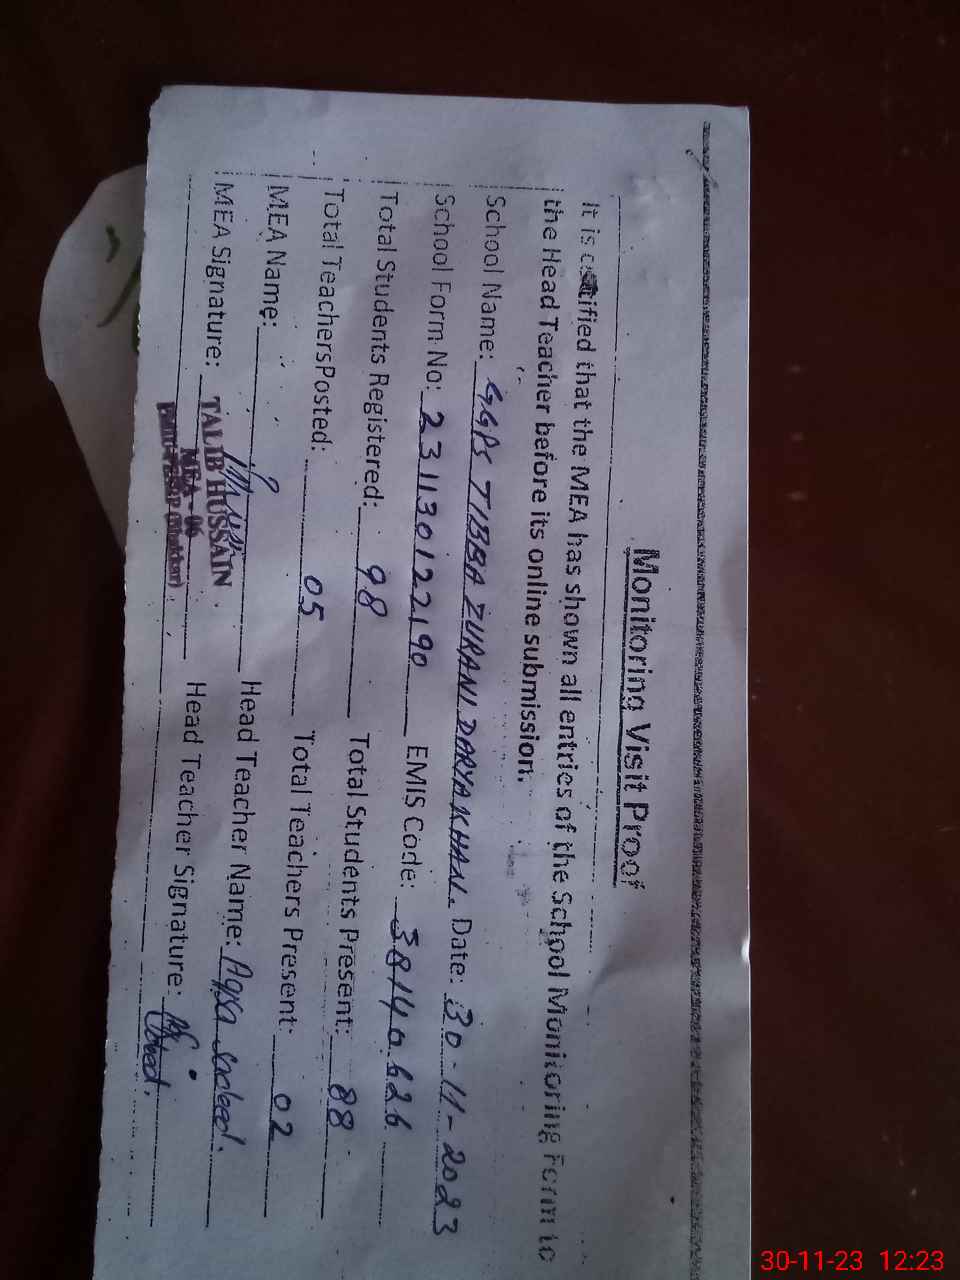 Monitoring Visit Proof
It is certified that the MEA has shown all entries of the School Monitoring Form to
the Head Teacher before its online submission.
School Name: GGPS TIBBA ZURANI DARYA KHAN. Date: 30-11-2023
School Form No: 231130122190 EMIS Code: 38140626
Total Students Registered: 98 Total Students Present: 88
Total Teachers Posted: 05 Total Teachers Present: 02
MEA Name: Head Teacher Name: Aqsa
MEA Signature: Head Teacher Signature:
TALIB HUSSAIN
MEA - 06
30-11-23 12:23